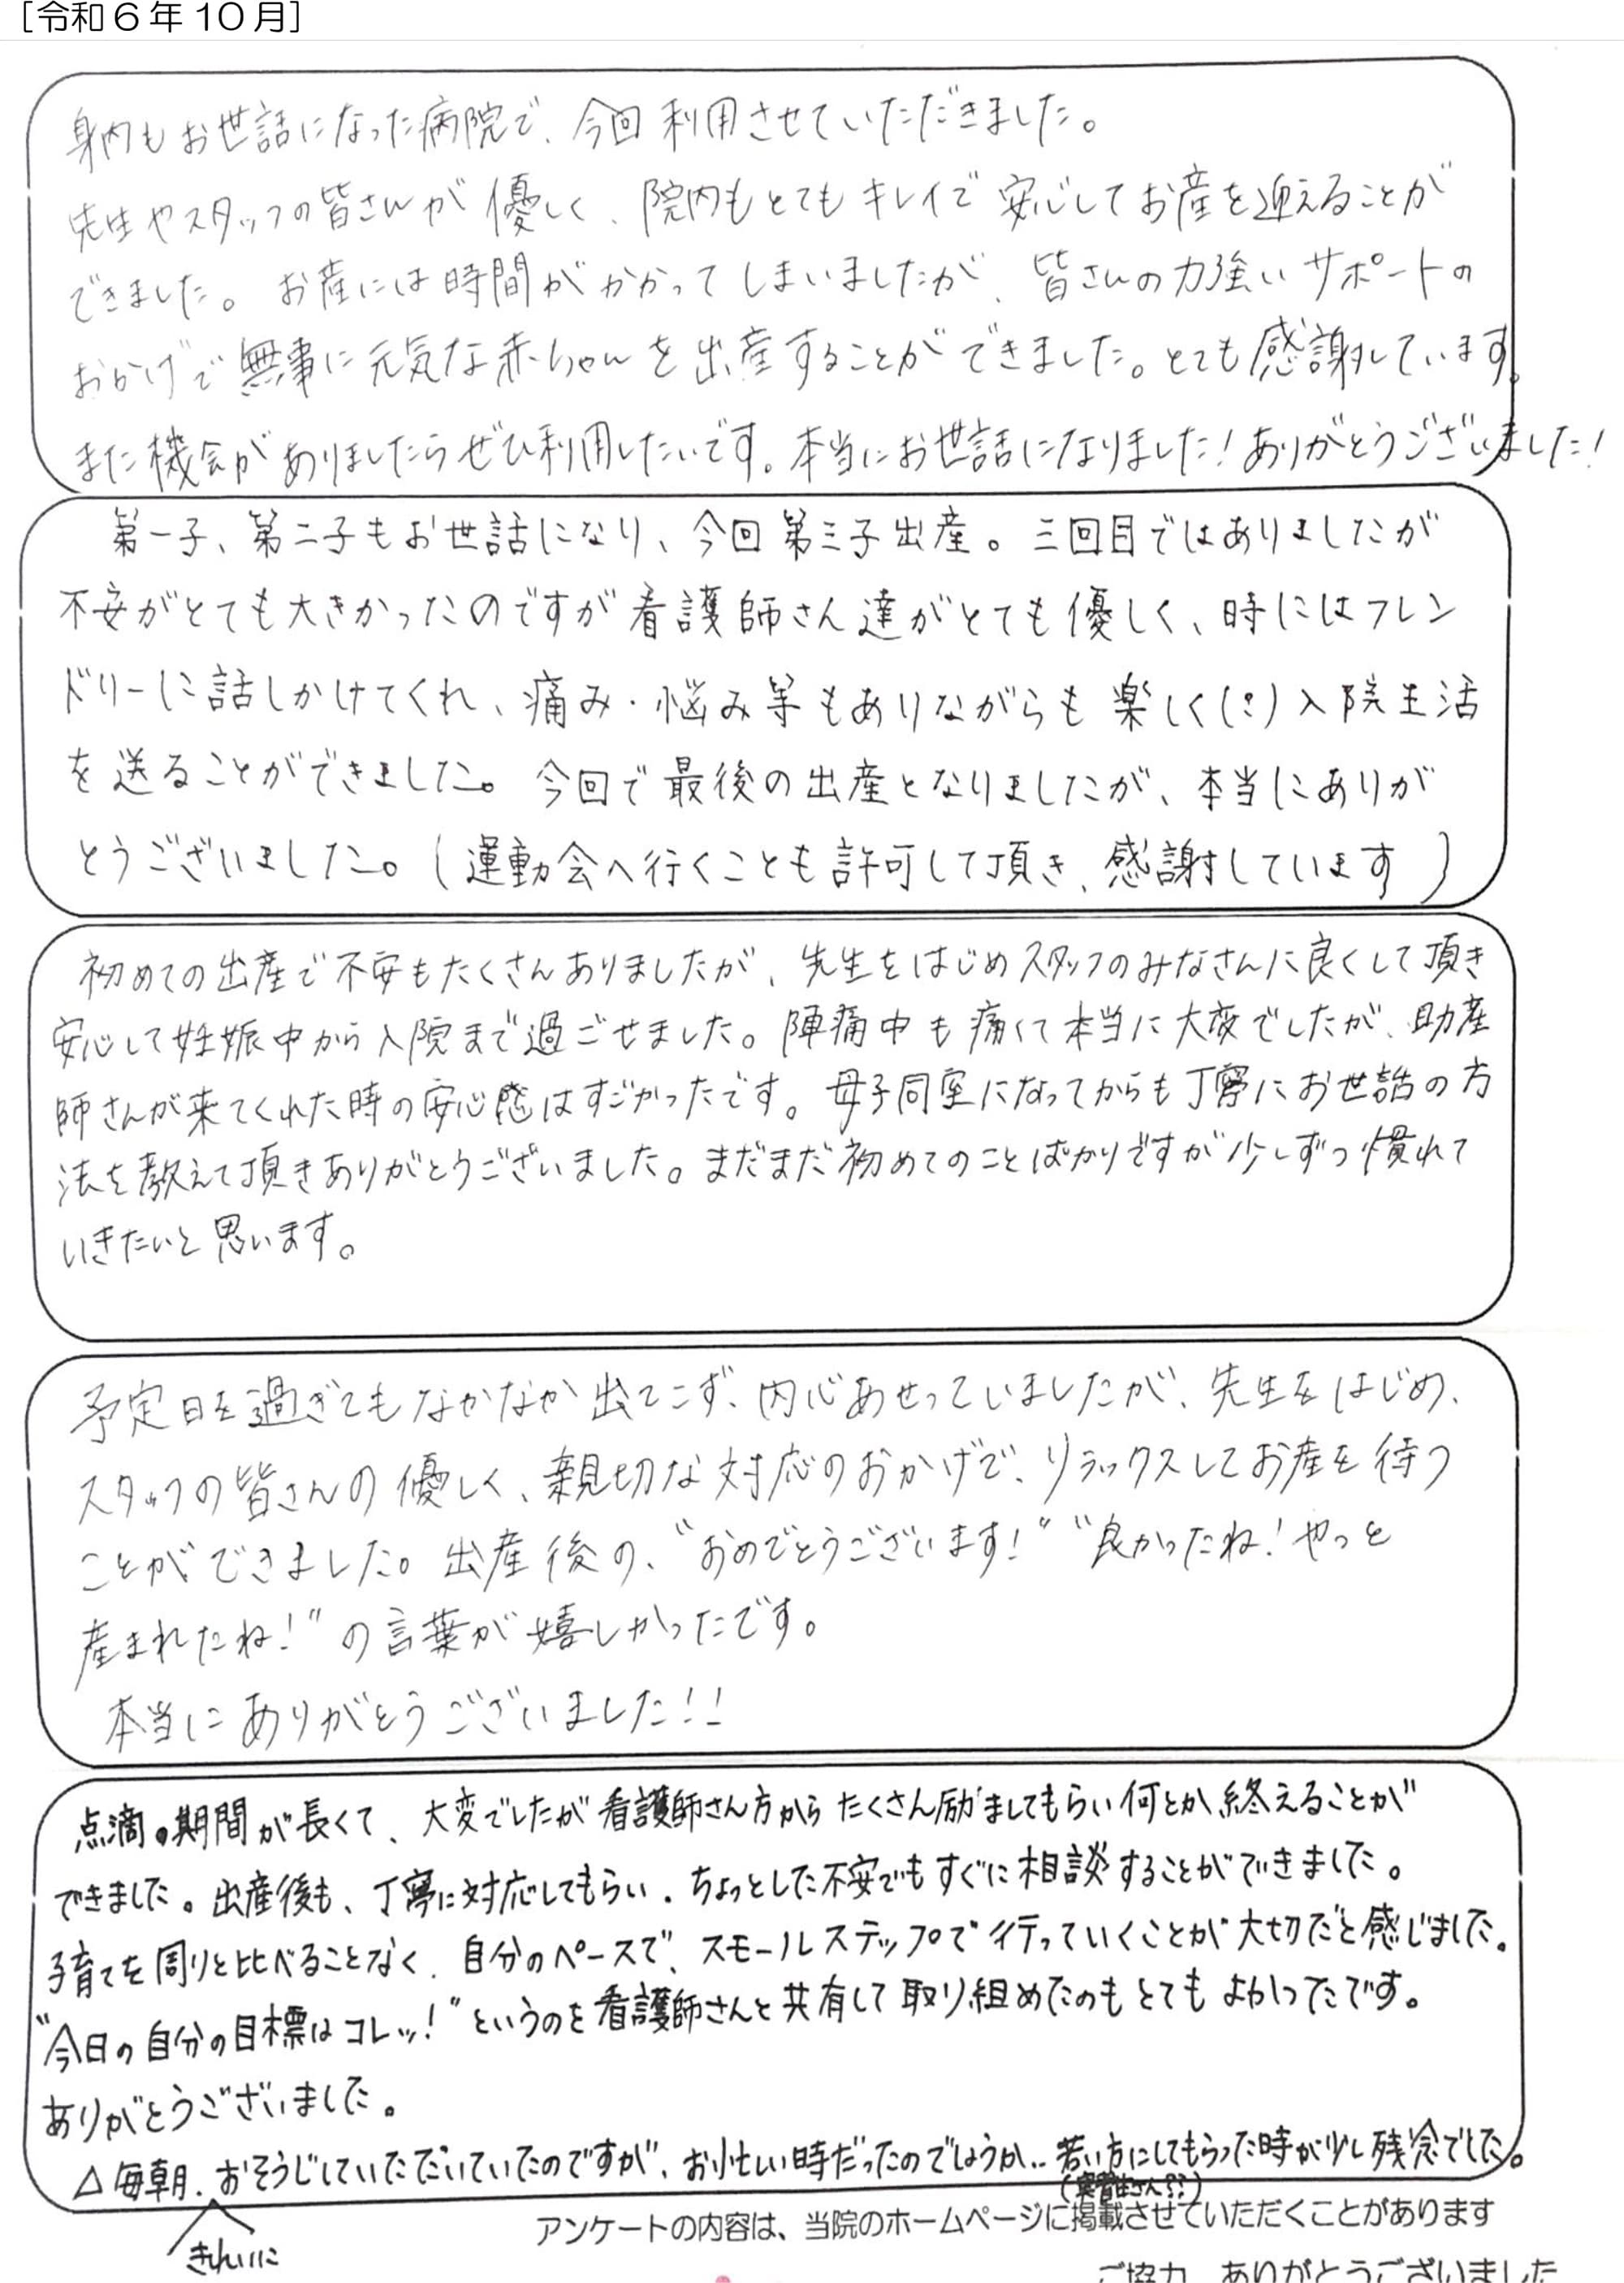 [令和6年10月]
身内もお世話になった病院で、今回利用させていただきました。
先生やスタッフの皆さんが優しく、院内もとてもキレイで安心してお産を迎えることが
できました。お産には時間がかかってしまいましたが、皆さんの力強いサポートの
おかげで無事に元気な赤ちゃんを出産することができました。とても感謝しています。
また機会がありましたらぜひ利用したいです。本当にお世話になりました!ありがとうございました!
第一子、第二子もお世話になり、今回第三子出産。三回目ではありましたが
不安がとても大きかったのですが看護師さん達がとても優しく、時にはフレン
ドリーに話しかけてくれ、痛み・悩み等もありながらも楽しく(?)入院生活
を送ることができました。今回で最後の出産となりましたが、本当にありが
とうございました。(運動会へ行くことも許可して頂き、感謝しています)
初めての出産で不安もたくさんありましたが、先生をはじめスタッフのみなさんに良くして頂き
安心して妊娠中から入院まで過ごせました。陣痛中も痛くて本当に大変でしたが、助産
師さんが来てくれた時の安心感はすごかったです。母子同室になってからも丁寧にお世話の方
法を教えて頂きありがとうございました。まだまだ初めてのことばかりですが少しずつ慣れて
いきたいと思います。
予定日を過ぎてもなかなか出てこず、内心あせっていましたが、先生をはじめ、
スタッフの皆さんの優しく、親切な対応のおかげで、リラックスしてお産を待つ
ことができました。出産後の、"おめでとうございます!" "良かったね!やっと
産まれたね!"の言葉が嬉しかったです。
本当にありがとうございました!!
点滴の期間が長くて、大変でしたが看護師さん方からたくさん励ましてもらい何とか終えることが
できました。出産後も、丁寧に対応してもらい、ちょっとした不安でもすぐに相談することができました。
子育てを周りと比べることなく、自分のペースで、スモールステップで行っていくことが大切だと感じました。
"今日の自分の目標はコレッ!"というのを看護師さんと共有して取り組めたのもとてもよかったです。
ありがとうございました。
△毎朝、おそうじしていただいていたのですが、お忙しい時だったのでしょうか.. 若い方にしてもらった時が少し残念でした。
(実習生さん??)
きれいに
アンケートの内容は、当院のホームページに掲載させていただくことがあります
ご協力 ありがとうございました